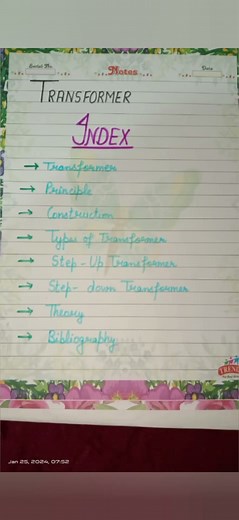 Serial No.
Notes
Date
TRANSFORMER
INDEX
→ Transformer
→ Principle
→ Construction
→ Types of Transformer
→ Step-Up Transformer
→ Step-down Transformer
→ Theory
→ Bibliography
TREND
Jan 25, 2024, 07:52